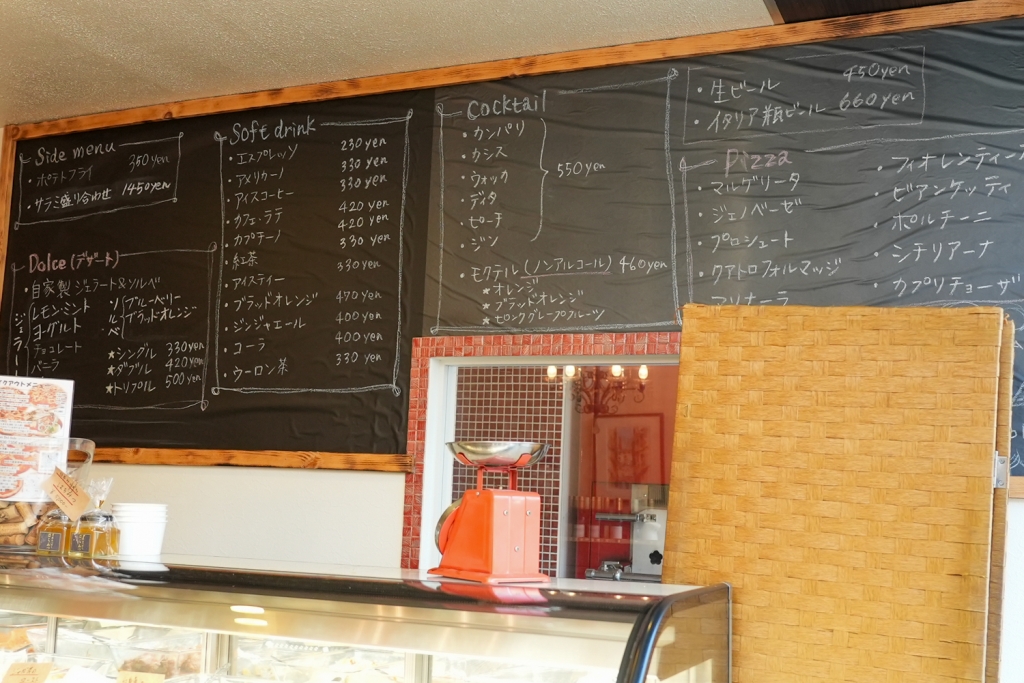 Side menu
・ポテトフライ 350yen
・サラミ盛り合わせ 1450yen
Dolce(デザート)
・自家製 ジェラート&ソルベ
ジェラート
レモンミント
ヨーグルト
チョコレート
ソルベ
ブルーベリー
ブラッドオレンジ
★シングル 330yen
★ダブル 420yen
★トリプル 500yen
Soft drink
・エスプレッソ 230yen
・アメリカーノ 330yen
・アイスコーヒー 330yen
・カフェ・ラテ 420yen
・カプチーノ 420yen
・紅茶 330yen
・アイスティー 330yen
・ブラッドオレンジ 470yen
・ジンジャエール 400yen
・コーラ 400yen
・ウーロン茶 330yen
Cocktail
・カンパリ
・カシス
・ウォッカ
・ディタ
・ピーチ
・ジン
550yen
・モクテル(ノンアルコール) 460yen
★オレンジ
★ブラッドオレンジ
★ピンクグレープフルーツ
・生ビール 450yen
・イタリア瓶ビール 660yen
Pizza
・マルゲリータ
・ジェノベーゼ
・プロシュート
・クアトロフォルマッジ
マリナーラ
・フィオレンティーナ
・ビアンケッティ
・ポルチーニ
・シチリアーナ
・カプリチョーザ